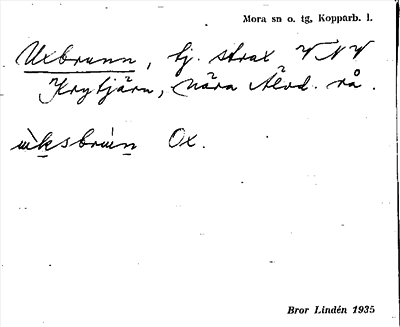 Mora sn o. tg, Kopparb. l.
Uxbrunn, tj. strax VNV
Krytjärn, nära Älvd. rå.
ùksbrùn Ox.
Bror Lindén 1935